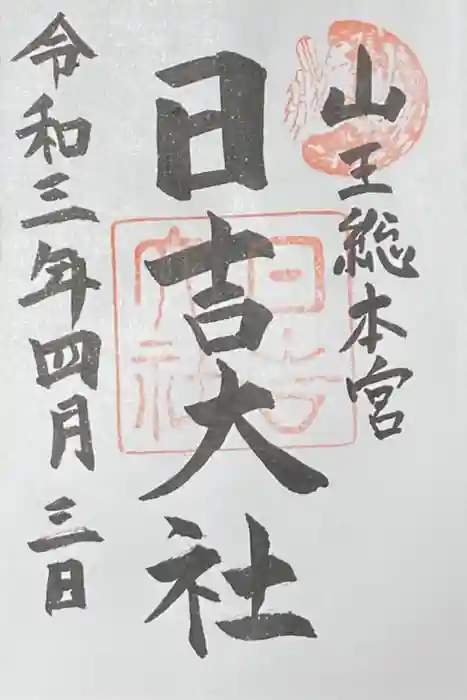 山王総本宮
日吉大社
令和三年四月三日
日吉
大社